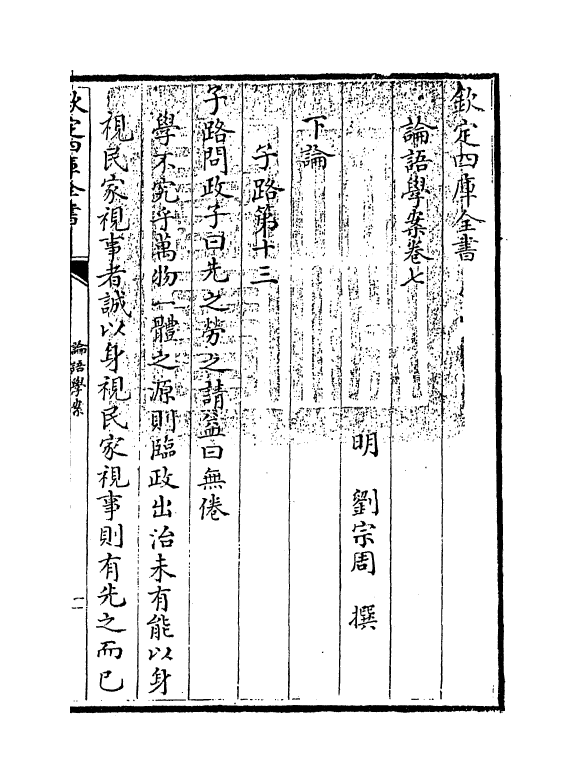 欽定四庫全書
論語學案卷七
明 劉宗周 撰
下論
子路第十三
子路問政子曰先之勞之請益曰無倦
學不究乎萬物一體之源則臨政出治未有能以身
視民家視事者誠以身視民家視事則有先之而已
欽定四庫全書
論語學案